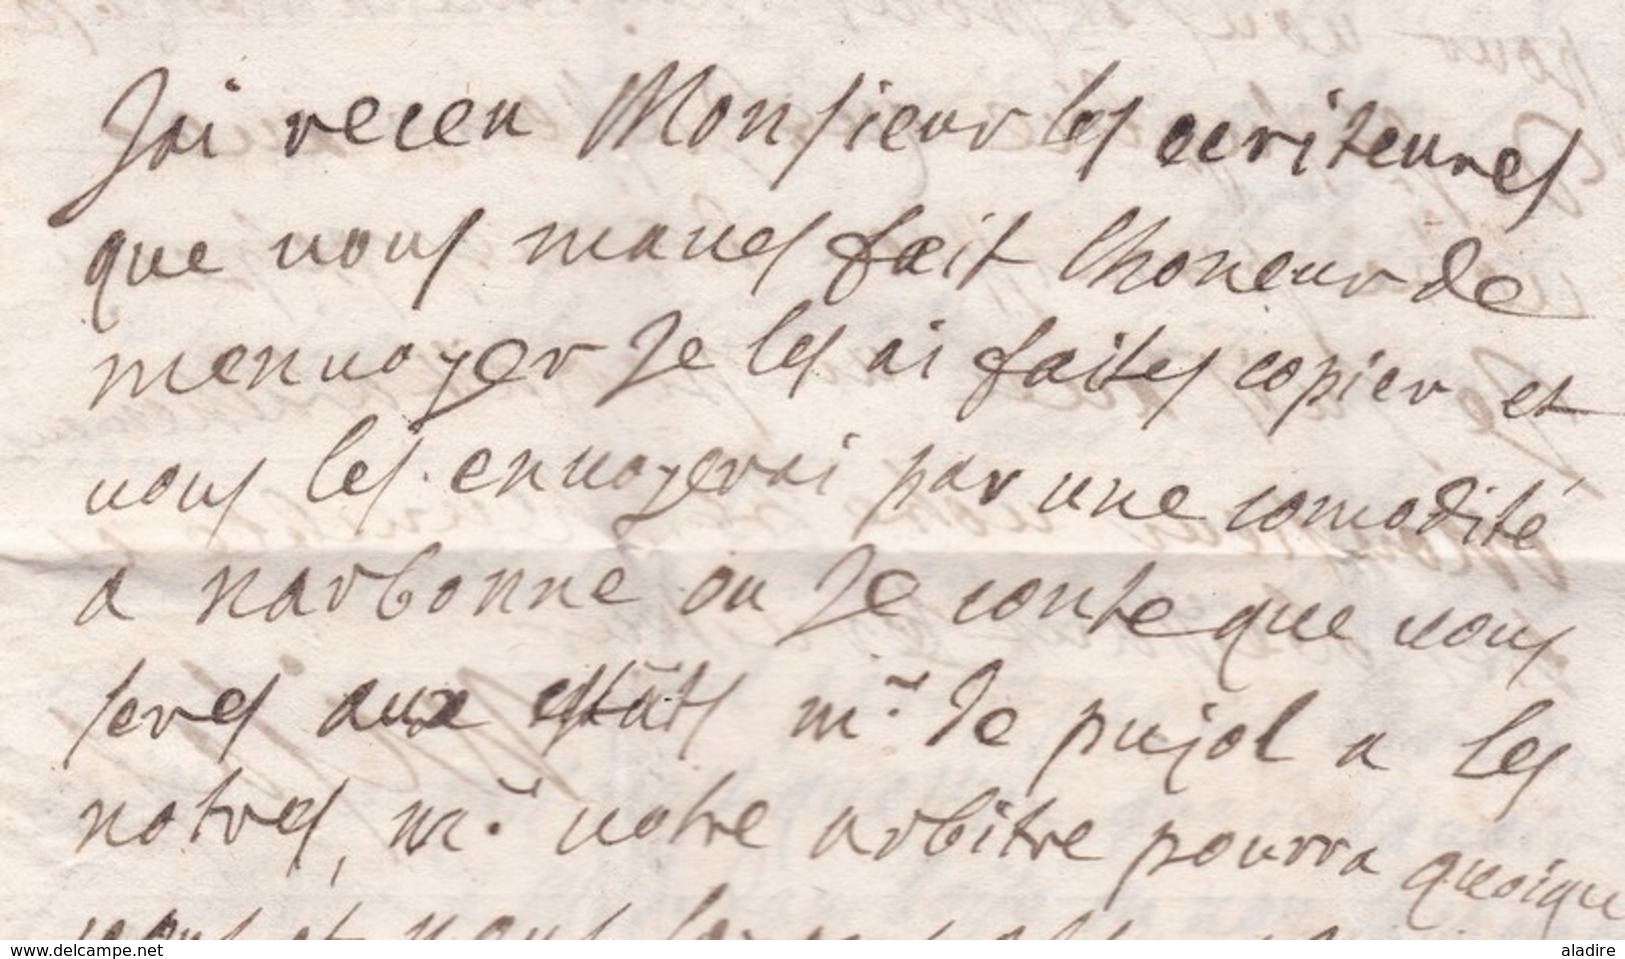 Jai receu Monsieur les ecriteures
que vous maves fait lhoneur de
menvoyer Je les ai faites copier et
vous les envoyerai par une comodité
a narbonne ou Je conte que vous
seres aux estâts mr de pujol a les
notres, mr votre arbitre pourra quoique
vous et nous
delcampe.net
aladire